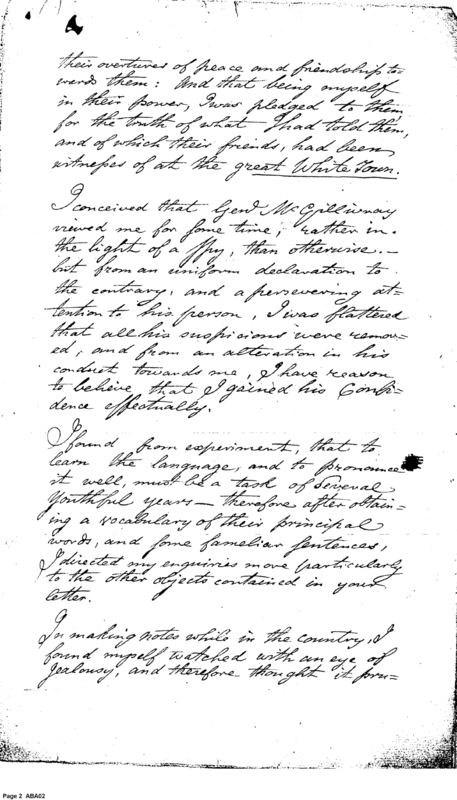 their overtures of peace and friendship to-
wards them: And that being myself
in their power, I was pledged to them
for the truth of what I had told them,
and of which their friends, had been
witnesses of at the great White Town.
I conceived that Genl McGilliwray
viewed me for some time, rather in
the light of a spy, than otherwise. —
but from an uniform declaration to
the contrary, and a persevering at-
tention to his person, I was flattered
that all his suspicions were remov-
ed, and from an alteration in his
conduct towards me, I have reason
to believe that I gained his Confi-
dence effectually.
I found from experiment, that to
learn the language, and to pronounce
it well, must be a task of several
youthful years — therefore after obtain-
ing a vocabulary of their principal
words, and some fameliar sentences,
I directed my enquiries more particularly
to the other objects contained in your
letter.
In making notes while in the country, I
found myself watched with an eye of
jealousy, and therefore thought it pru-
Page 2 ABA02